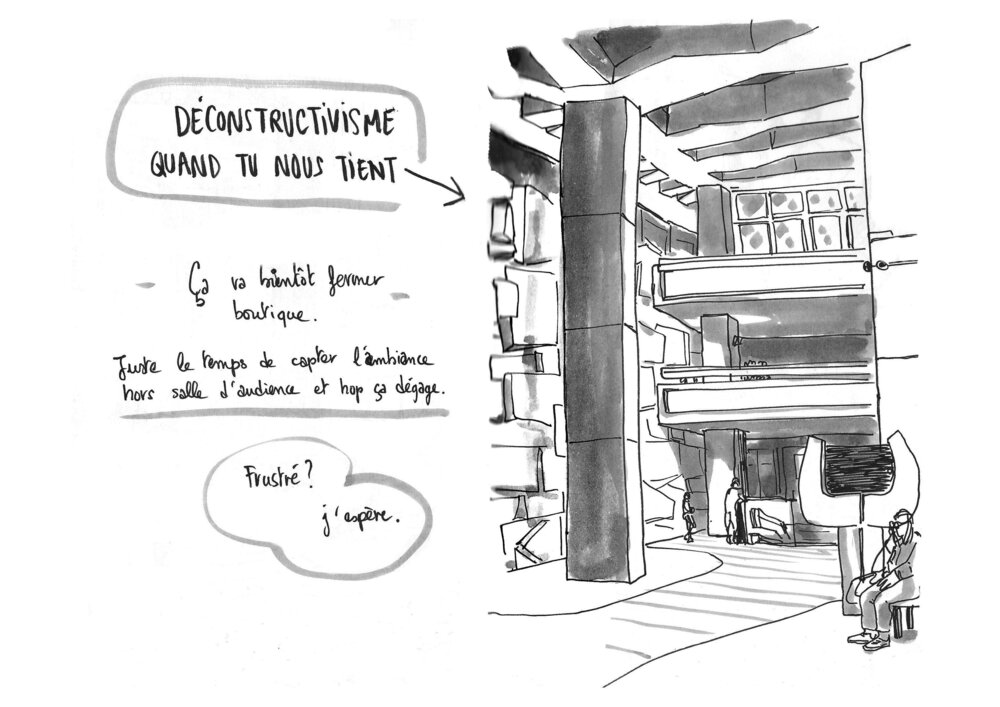 DÉCONSTRUCTIVISME
QUAND TU NOUS TIENT
Ça va bientôt fermer
boutique.
Juste le temps de capter l'ambiance
hors salle d'audience et hop ça dégage.
Frustré?
j'espère.